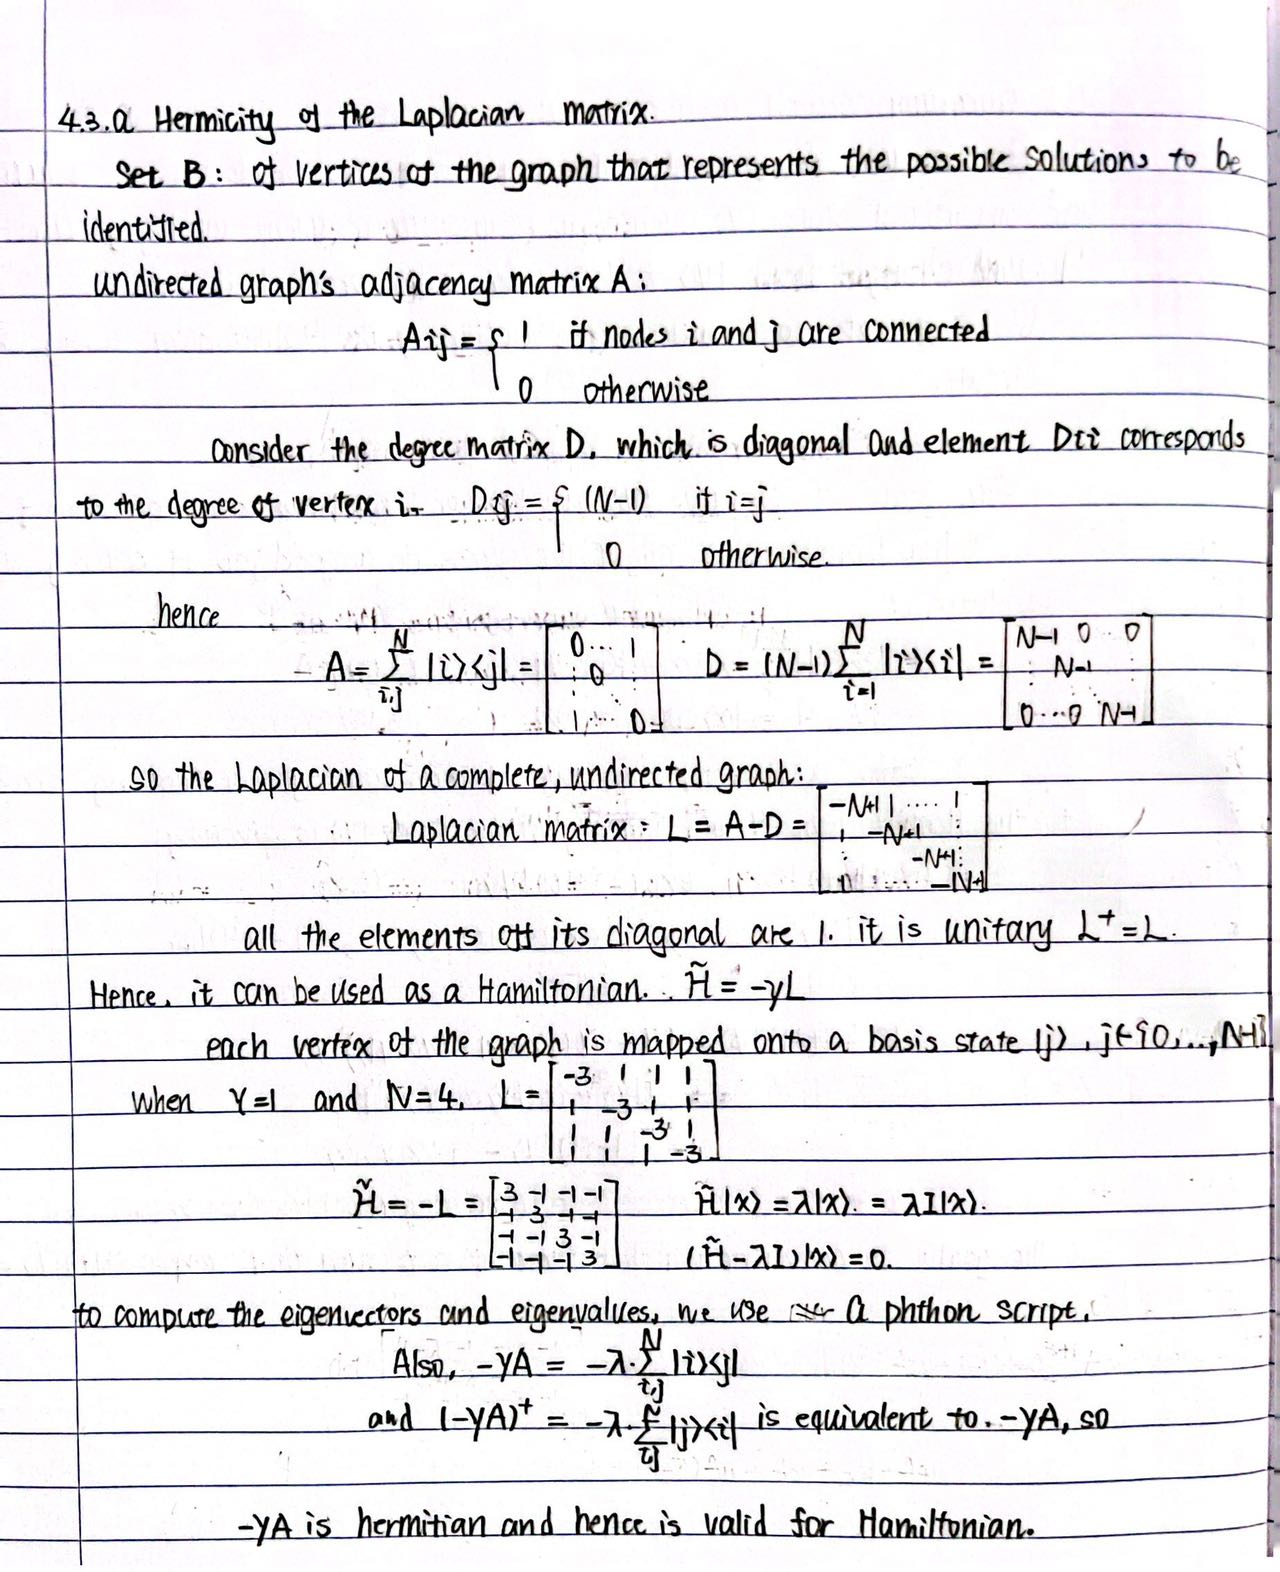 4.3.a Hermicity of the Laplacian matrix.
Set B: of vertices of the graph that represents the possible solutions to be
identified.
undirected graph's adjacency matrix A:
Aij = { 1 if nodes i and j are connected
0 otherwise
Consider the degree matrix D, which is diagonal and element Dii corresponds
to the degree of vertex i. Dij = { (N-1) if i=j
0 otherwise.
hence
A = Σ_{i,j}^{N} |i><j| = [0 ... 1 ; ⋮ 0 ⋮ ; 1 ... 0] D = (N-1) Σ_{i=1}^{N} |i><i| = [N-1 0 .. 0 ; ⋮ N-1 ⋮ ; 0 ... 0 N-1]
so the Laplacian of a complete, undirected graph:
Laplacian matrix: L = A-D = [-N+1 1 ..... 1 ; 1 -N+1 ; ⋮ -N+1 ⋮ ; ..... -N+1]
all the elements off its diagonal are 1. it is unitary L† = L.
Hence, it can be used as a Hamiltonian. H̃ = -γL
each vertex of the graph is mapped onto a basis state |j>, j∈{0,...,N-1}
when γ=1 and N=4, L = [-3 1 1 1 ; 1 -3 1 1 ; 1 1 -3 1 ; 1 1 1 -3]
H̃ = -L = [3 -1 -1 -1 ; -1 3 -1 -1 ; -1 -1 3 -1 ; -1 -1 -1 3] H̃|x> = λ|x>. = λI|x>.
(H̃-λI)|x> = 0.
to compute the eigenvectors and eigenvalues, we use a phthon script.
Also, -γA = -λ·Σ_{i,j}^{N} |i><j|
and (-γA)† = -λ·Σ_{i,j}^{N} |j><i| is equivalent to. -γA, so
-γA is hermitian and hence is valid for Hamiltonian.